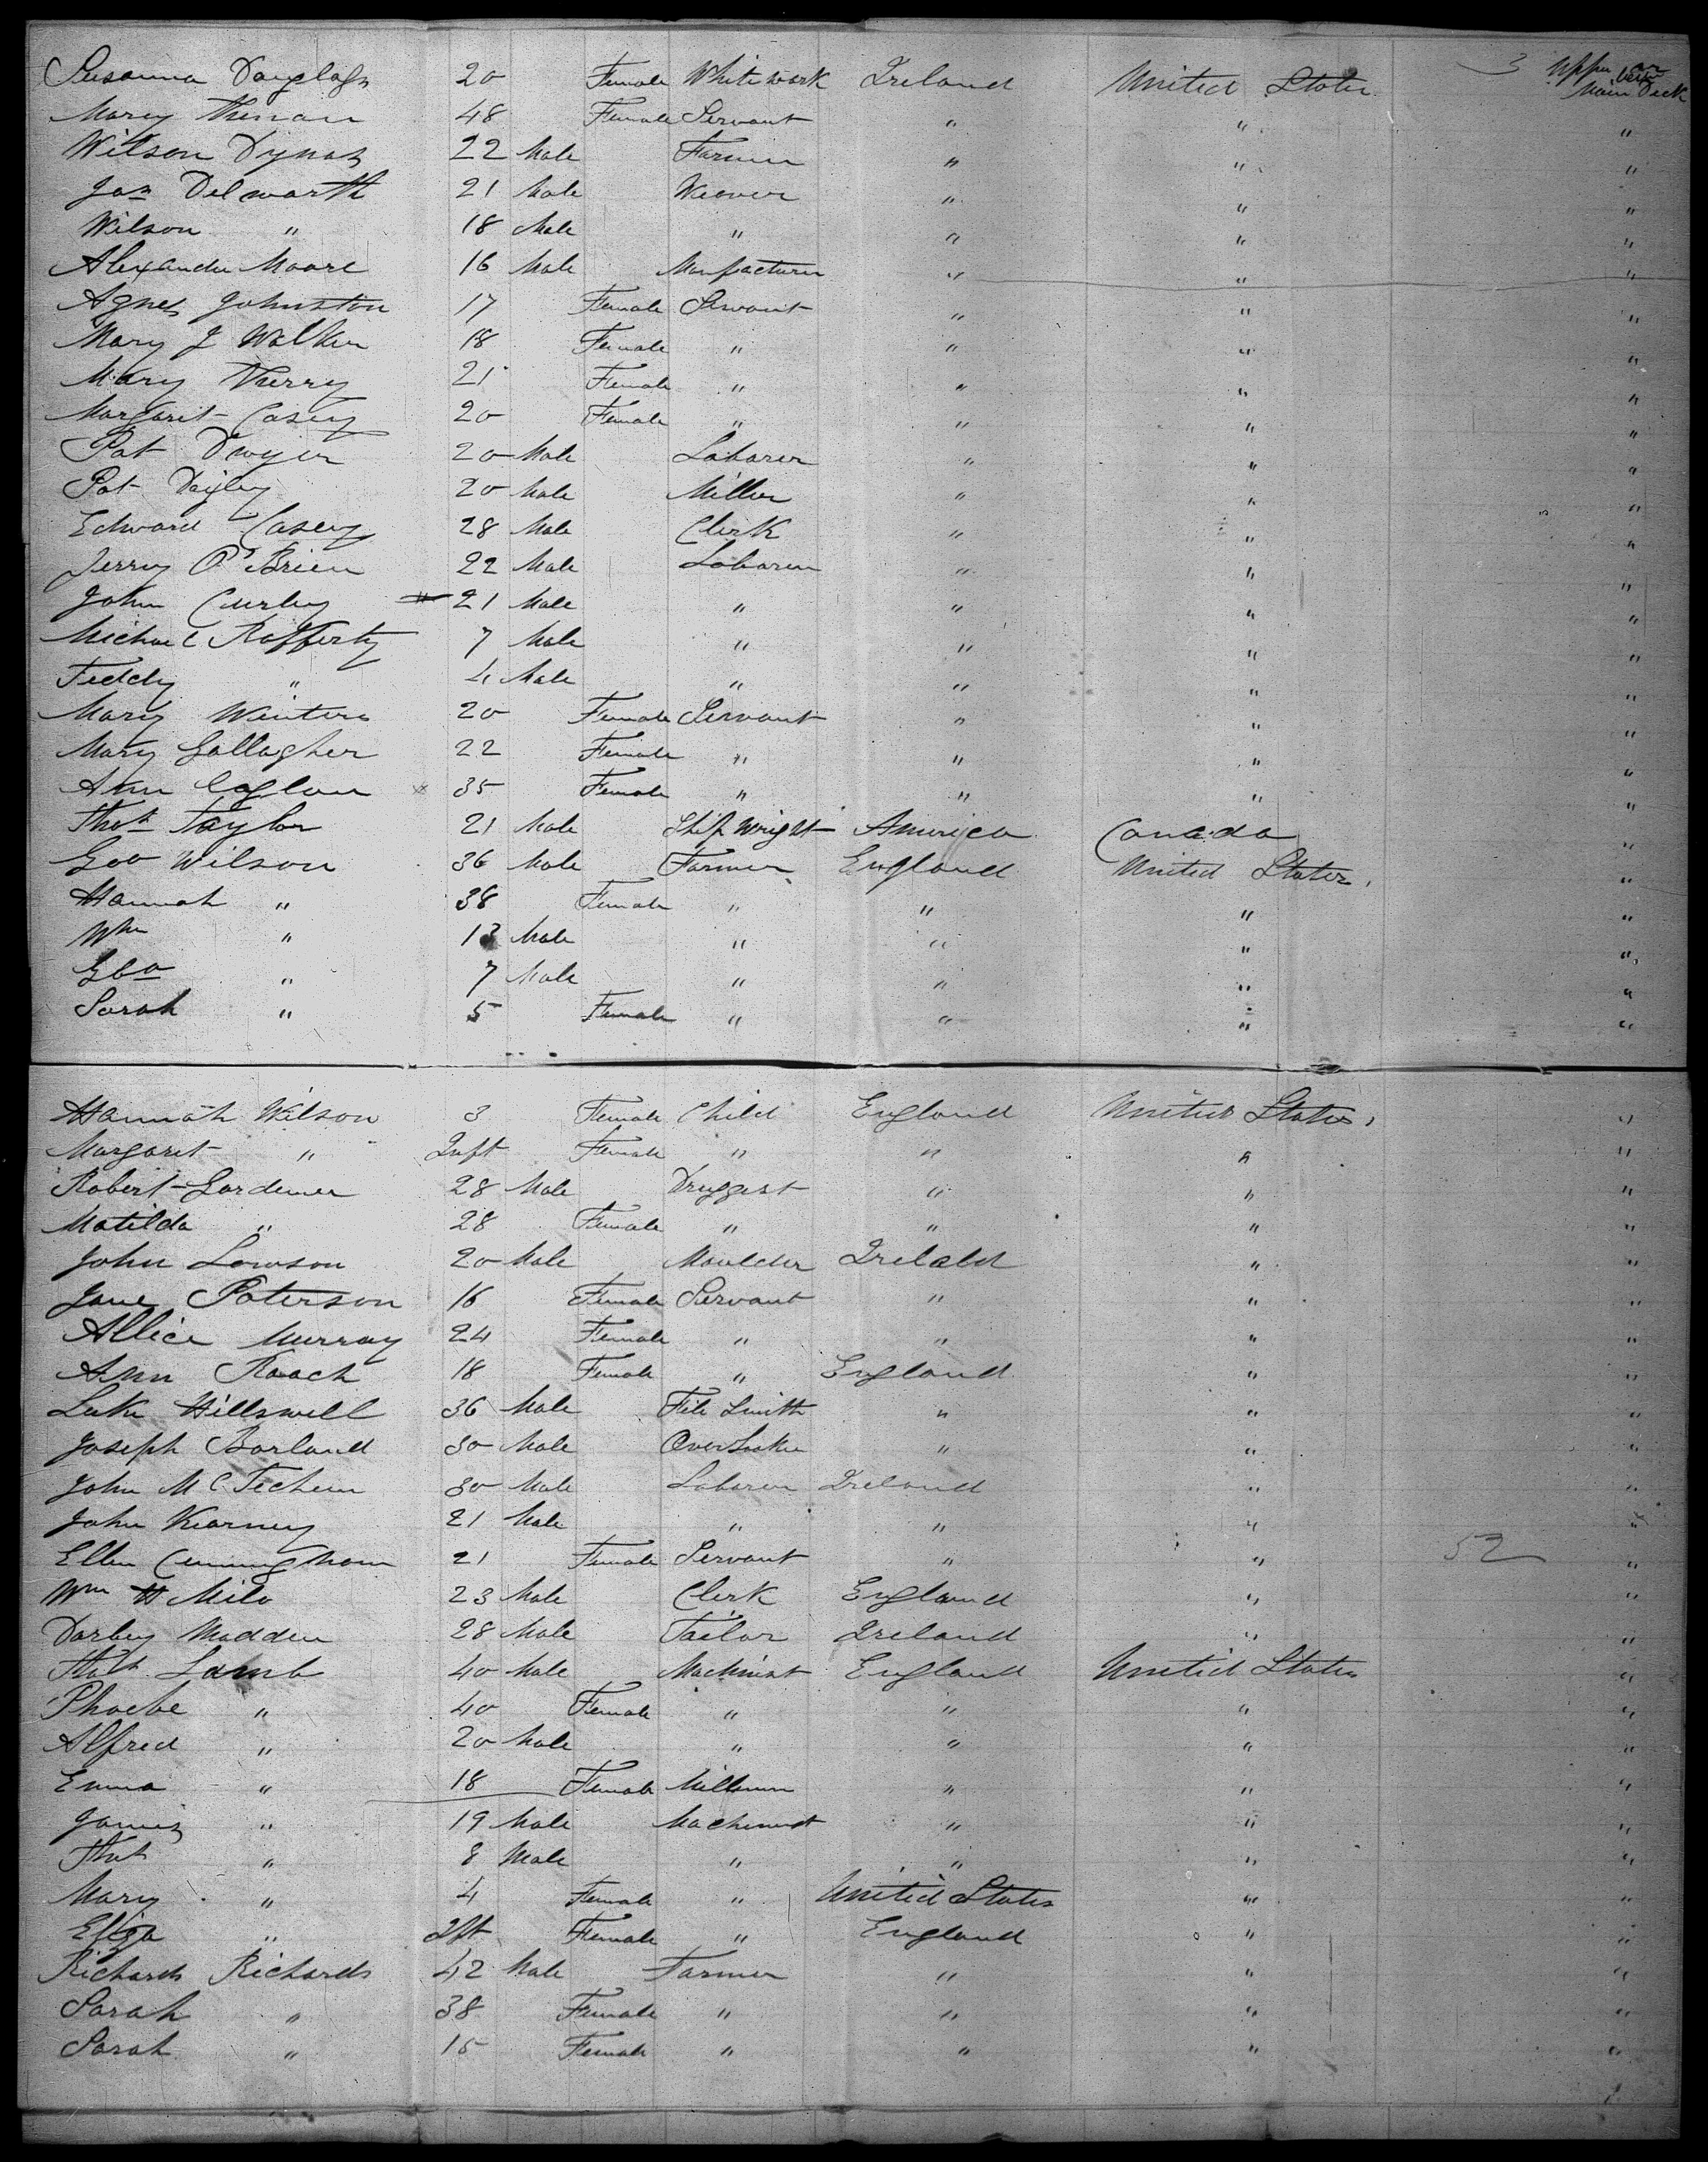 Susanna Douglass 20 Female White work Ireland United States 3 Upper or Main Deck
Mary 48 Female Servant " " "
Wilson 22 Male Farmer " " "
Jas Delwarth 21 Male Weaver " " "
Wilson " 18 Male " " " "
Alexander Moore 16 Male Manfacturer " " "
Agnes Johnston 17 Female Servant " " "
Mary J Walker 18 Female " " " "
Mary Therry 21 Female " " " "
Margaret Casey 20 Female " " " "
Pat Dwyer 20 Male Laborer " " "
Pat 20 Male Miller " " "
Edward Casey 28 Male Clerk " " "
Jerry O'Brien 22 Male Laborer " " "
John Curley 21 Male " " " "
Michael Rafferty 7 Male " " " "
Teddy " 4 Male " " " "
Mary Winters 20 Female Servant " " "
Mary Gallagher 22 Female " " " "
Ann 35 Female " " " "
Thos Taylor 21 Male Ship Wright America Canada "
Geo Wilson 36 Male Farmer England United States "
Hannah " 38 Female " " " "
Wm " 13 Male " " " "
Geo " 7 Male " " " "
Sarah " 5 Female " " " "
Hannah Wilson 3 Female Child England United States "
Margaret " Inft Female " " " "
Robert Gardener 28 Male Druggist " " "
Matilda " 28 Female " " " "
John Lawson 20 Male Moulder Irelald " "
Jane Paterson 16 Female Servant " " "
Allice Murray 24 Female " " " "
Ann Roach 18 Female " England " "
Luke Hillswell 36 Male File Smith " " "
Joseph Borland 30 Male Over Looker " " "
John McTechern 30 Male Laborer Ireland " "
John Kearney 21 Male " " " "
Ellen Cunningham 21 Female Servant " " 52 "
Wm H Milo 23 Male Clerk England " "
Darby Madden 28 Male Tailor Ireland " "
Thos Lamb 40 Male Machinist England United States "
Phoebe " 40 Female " " " "
Alfred " 20 Male " " " "
Emma " 18 Female " " "
James " 19 Male Machenist " " "
Thos " 8 Male " " " "
Mary " 4 Female " United States " "
Eliza " Ift Female " England " "
Richards Richards 42 Male Farmer " " "
Sarah " 38 Female " " " "
Sarah " 15 Female " " " "